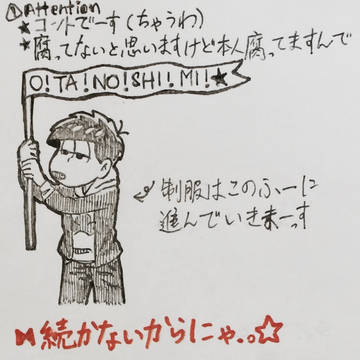 ①Attention
★コントでーす(ちゃうわ)
*腐ってないと思いますけど本人腐ってますんで
O!TA!NO!SHI!MI!★
制服はこのふーに
進んでいきまーっす
⋈続かないからにゃ.。☆